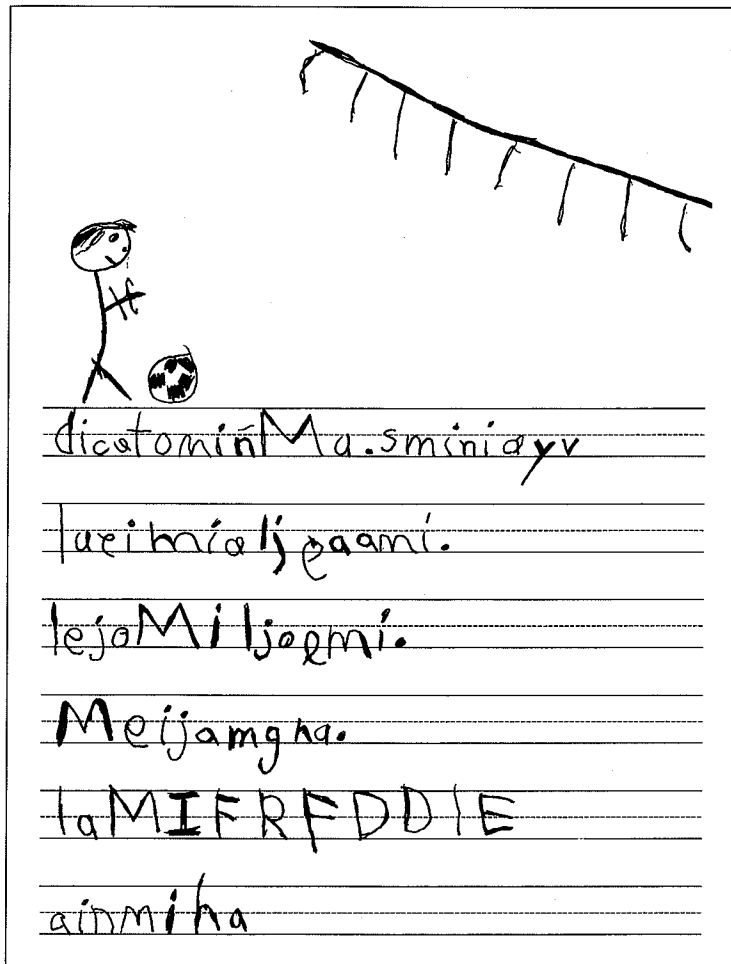 dicatomiñMa.sminiayv
lueimialjeaami.
lejoMiljoemi.
Meijamgha.
laMIFRFDDIE
ainmiha